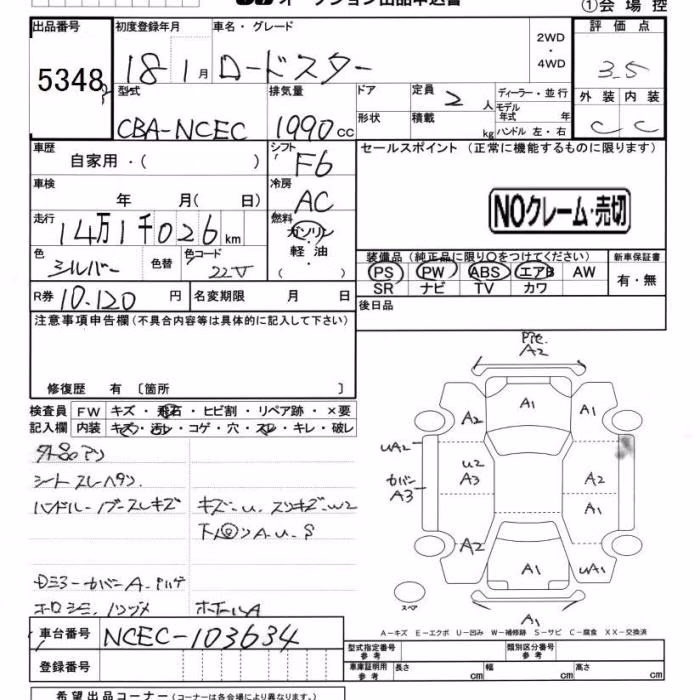 オークション出品申込書
①会場控
出品番号
5348
初度登録年月
18 1月
車名・グレード
ロードスター
2WD
・
4WD
評価点
3.5
型式
CBA-NCEC
排気量
1990cc
ドア
形状
定員 2 人
積載 kg
ディーラー・並行
モデル年式 年
ハンドル 左・右
外装 内装
C C
車歴
自家用・( )
シフト
F6
セールスポイント (正常に機能するものに限ります)
車検
年 月( 日)
冷房
AC
NOクレーム・売切
走行
14万1千026km
燃料
ガソリン
・
軽油
( )
色
シルバー
色替
色コード
22V
装備品(純正品に限り○をつけてください)
新車保証書
PS PW ABS エアB AW
SR ナビ TV カワ
有・無
R券 10.120円
名変期限 月 日
後日品
注意事項申告欄(不具合内容等は具体的に記入して下さい)
修復歴 有 〔箇所 〕
検査員 FW キズ・飛石・ヒビ割・リペア跡・×要
記入欄 内装 キズ・汚レ・コゲ・穴・スレ・キレ・破レ
シート スレヘタリ
キズ-U.
A2
A1
A2
A1
UA2
U2
A3
A2
カバー
A3
A1
A2
A1
UA1
スペア
A1
A-キズ E-エクボ U-凹み W-補修跡 S-サビ C-腐食 XX-交換済
車台番号 NCEC-103634
登録番号
型式指定番号 参考
類別区分番号 参考
車庫証明用 参考
長さ cm 幅 cm 高さ cm
希望出品コーナー(コーナーは各会場により異なります。)